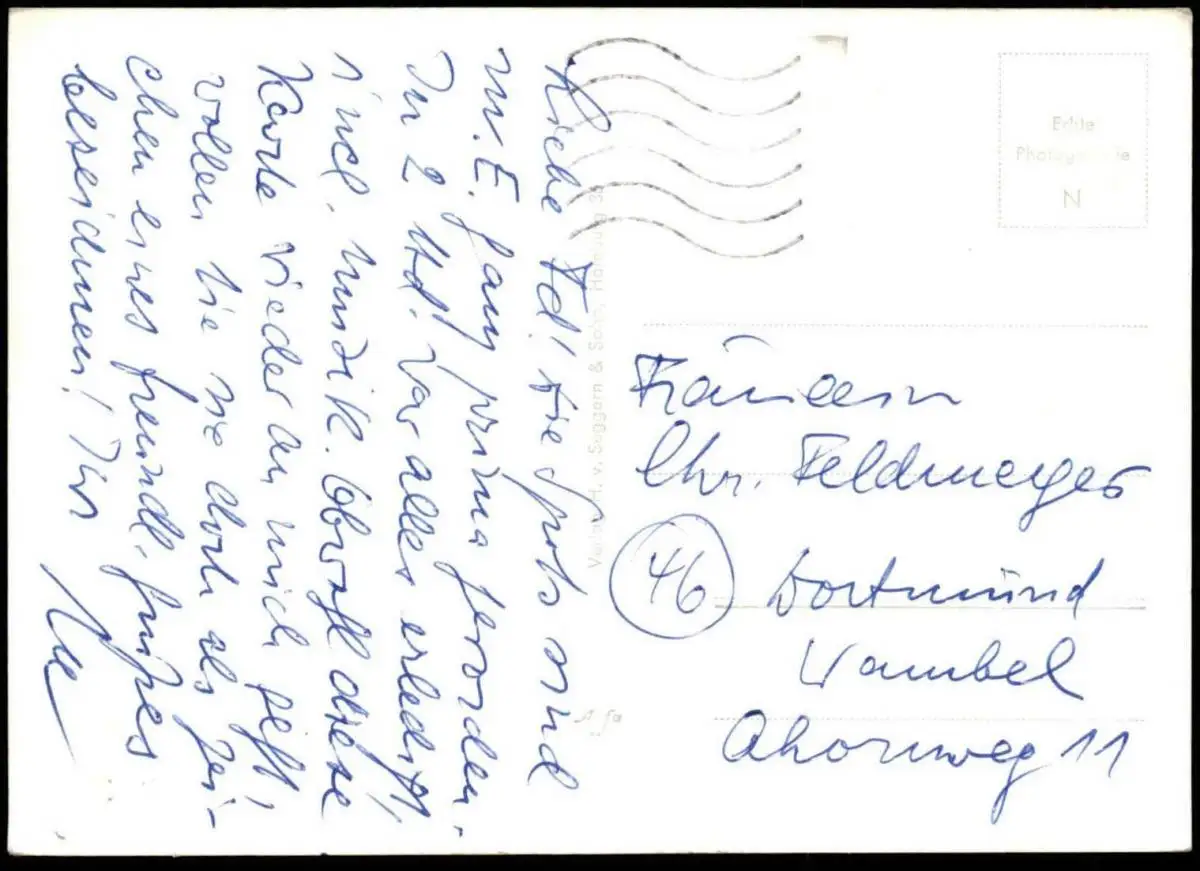 Liebe Fd! Die Spots sind
m. E. ganz prima geworden.
In 2 Std. war alles erledigt,
incl. Musik. Obwohl diese
Karte wieder an mich geht!
wollen Sie sie doch als Zei-
chen eines freundl. Grußes
bezeichnen! Ihr
Fräulein
Chr. Feldmeyer
46 Dortmund
Wambel
Ahornweg 11
Echte
Photographie
N
Verlag H. v. Seggern & Sohn, Hamburg